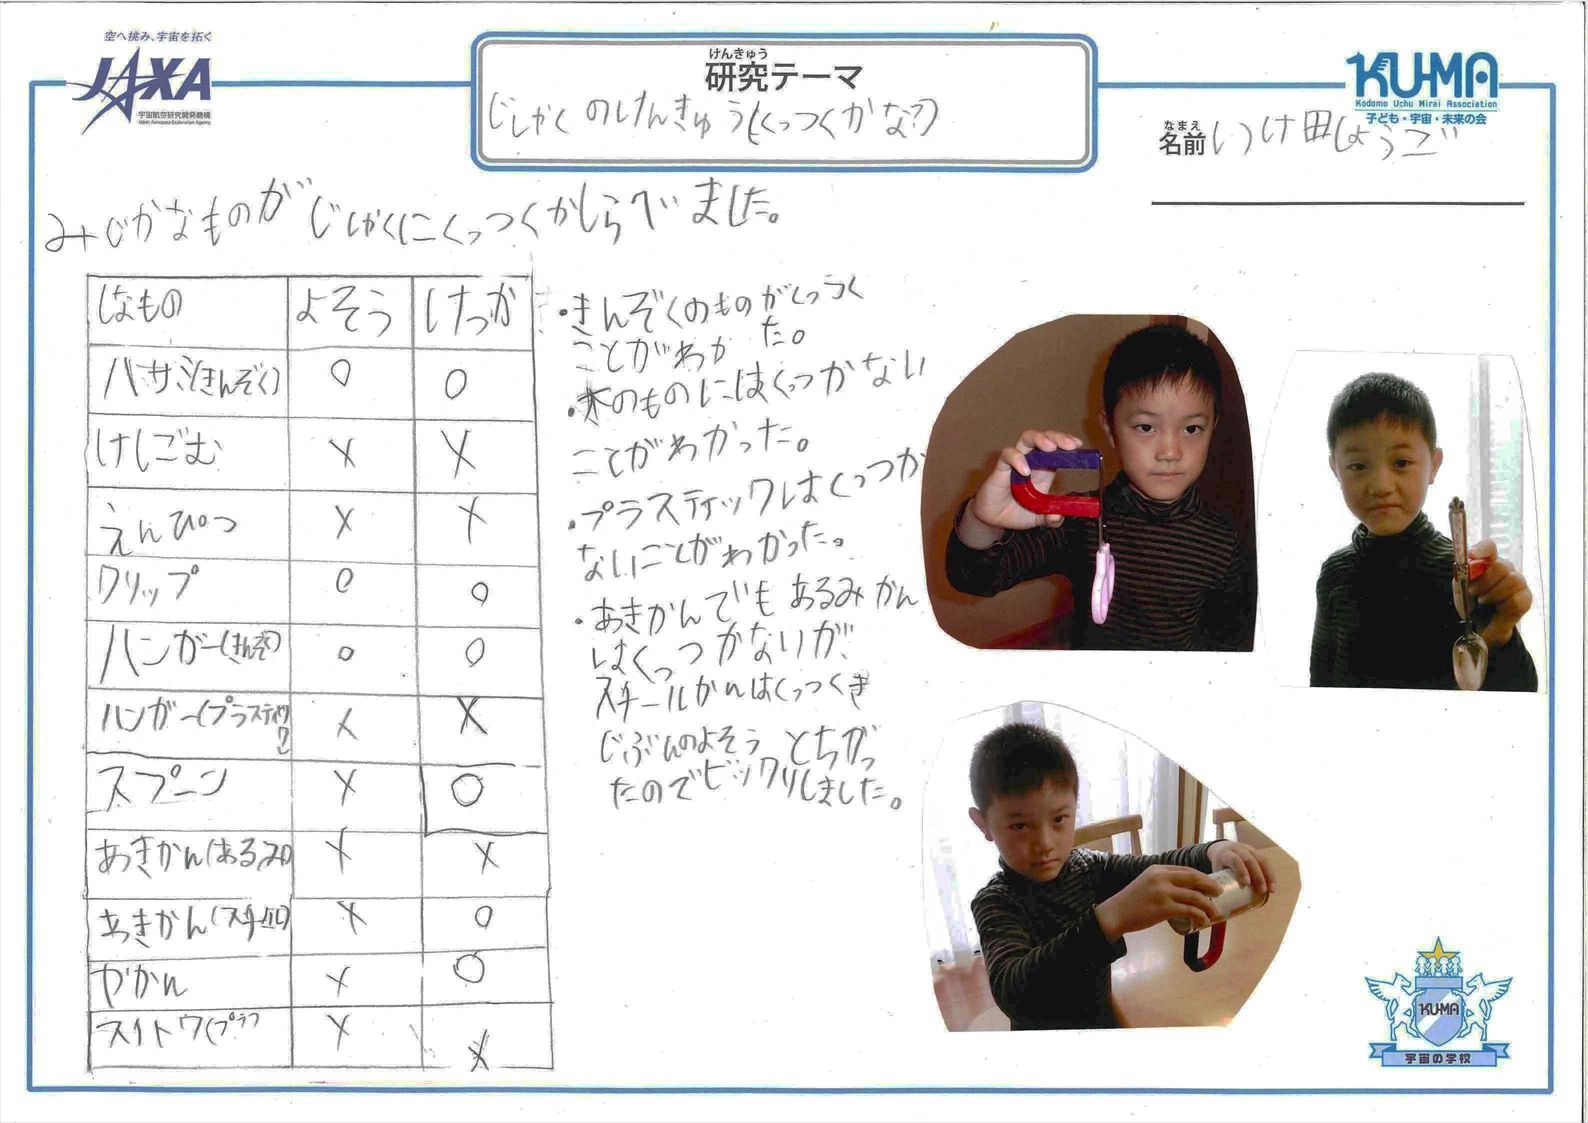 空へ挑み、宇宙を拓く
JAXA
宇宙航空研究開発機構
Japan Aerospace Exploration Agency
けんきゅう
研究テーマ
じしゃくのけんきゅう(くっつくかな?)
KU-MA
Kodomo Uchu Mirai Association
子ども・宇宙・未来の会
なまえ
名前 いけ田しょうご
みじかなものがじしゃくにくっつくかしらべました。
しなもの よそう けっか
ハサミ(きんぞく) ○ ○
けしごむ × ×
えんぴつ × ×
クリップ ○ ○
ハンガー(きんぞく) ○ ○
ハンガー(プラスティック) × ×
スプーン × ○
あきかん(あるみ) × ×
あきかん(スチール) × ○
やかん × ○
ストロー(プラ × ×
・きんぞくのものがくっつく
ことがわかった。
・木のものにはくっつかない
ことがわかった。
・プラスティックはくっつか
ないことがわかった。
・あきかんでもあるみかん
はくっつかないが
スチールかんはくっつき
じぶんのよそうとちがっ
たのでビックリしました。
KU-MA
宇宙の学校